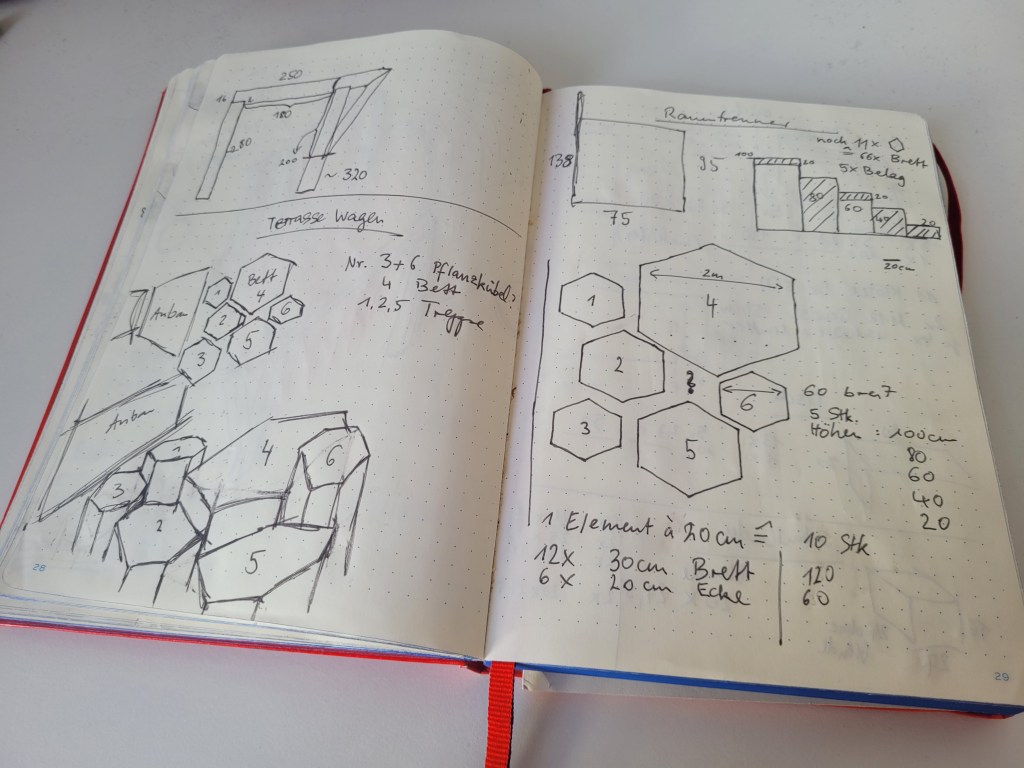 280
180
280
200
~ 320
Terrasse Wagen
Nr. 3+6 Pflanzkübel
4 Bett
1,2,5 Treppe
Anbau
1
Bett
4
2
6
5
3
Anbau
1
4
6
3
2
5
28
Raumtrenner
noch 11x
≙ 66x Brett
5x Belag
138
95
75
100
20
80
20
60
40
20
20cm
2m
1
4
2
6
3
5
60 breit
5 Stk.
Höhen : 100cm
80
60
40
20
1 Element à 20cm ≙ 10 Stk
12x 30cm Brett 120
6x 20cm Ecke 60
29